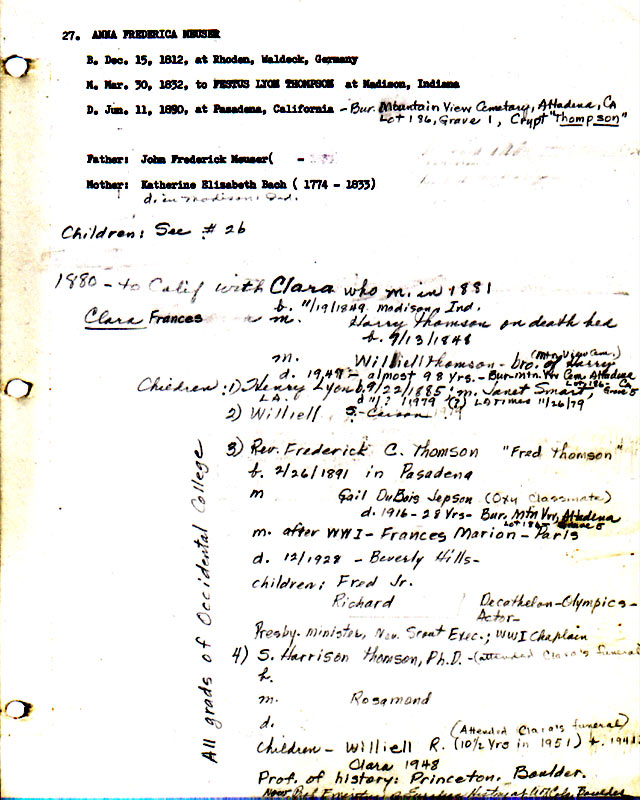 27. ANNA FREDERICA MEUSER
B. Dec. 15, 1812, at Rhoden, Waldeck, Germany
M. Mar. 30, 1832, to FESTUS LYON THOMPSON at Madison, Indiana
D. Jun. 11, 1890, at Pasadena, California - Bur. Mountain View Cemetary, Altadena, CA
Lot 186, Grave 1, Crypt "Thompson"
Father: John Frederick Meuser( -
Mother: Katherine Elizabeth Bach ( 1774 - 1833)
d. in Madison, Ind.
Children: See # 26
1880 - to Calif with Clara who m. in 1881
b. 11/19/1849 Madison, Ind.
Clara Frances m. Harry Thomson on death bed
b. 9/13/1848
(Mtn View Cem.)
m. Williell Thomson - bro. of Harry
d. 1948 - almost 98 yrs. - Bur. Mtn. Vw Cem. Altadena
Lot 186 - Ca Grave 5
Children: 1) Henry Lyon b. 9/22/1885; m. Janet Smart,
L.A. d 11/? 1979 (?) LA Times 11/26/79
2) Williell S. - Carson
3) Rev. Frederick C. Thomson "Fred Thomson"
b. 2/26/1891 in Pasadena
m Gail DuBois Jepson (Oxy Classmate)
d. 1916 - 28 Yrs - Bur. Mtn Vw, Altadena
Lot 186 - Grave 5
m. after WWI - Frances Marion - Paris
d. 12/1928 - Beverly Hills -
children: Fred Jr.
Richard Decathelon - Olympics -
Actor -
Presby. minister, Nev. Scout Exec.; WWI Chaplain
4) S. Harrison Thomson, Ph.D. - (attended Clara's funeral
b.
m. Rosamond
d.
(Attended Clara's funeral)
Children - Williell R. (10½ Yrs in 1951) b. 194
Clara 1948
Prof. of history: Princeton, Boulder.
Now Prof. Emeritus of European History at U. of Colo. Boulder
All grads of Occidental College